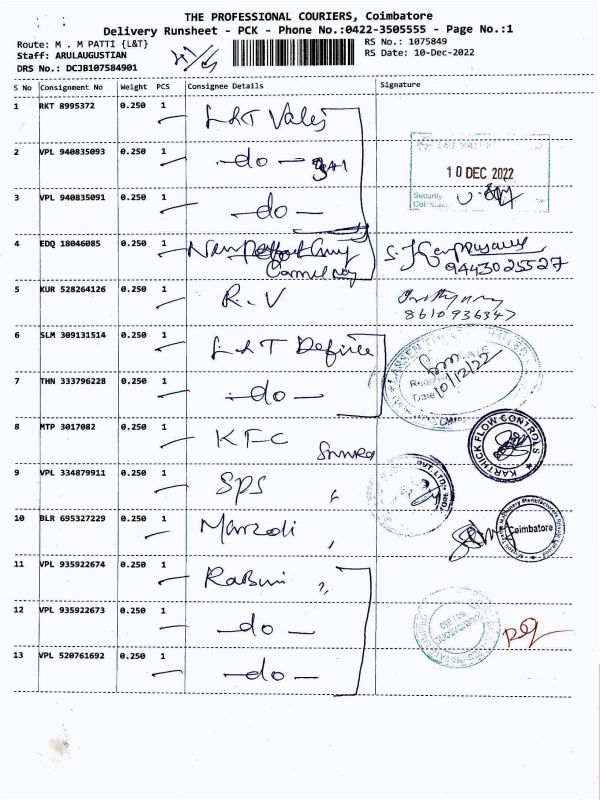 THE PROFESSIONAL COURIERS, Coimbatore
Delivery Runsheet - PCK - Phone No.:0422-3505555 - Page No.:1
Route: M . M PATTI {L&T}
RS No.: 1075849
Staff: ARULAUGUSTIAN
RS Date: 10-Dec-2022
DRS No.: DCJB107584901
S No Consignment No Weight PCS Consignee Details Signature
1 RKT 8995372 0.250 1 L&T Valves
2 VPL 940835093 0.250 1 -do-
10 DEC 2022
3 VPL 940835091 0.250 1 -do-
Security
4 EDQ 18046085 0.250 1
9443025527
5 KUR 528264126 0.250 1 R.V
8610936347
6 SLM 309131514 0.250 1 L&T Defence
7 THN 333796228 0.250 1 -do-
Date 10/12/22
8 MTP 3017082 0.250 1 KFC
KARTHICK FLOW CONTROLS
9 VPL 334879911 0.250 1 SPS
10 BLR 695327229 0.250 1
Coimbatore
11 VPL 935922674 0.250 1
12 VPL 935922673 0.250 1 -do-
13 VPL 520761692 0.250 1 -do-